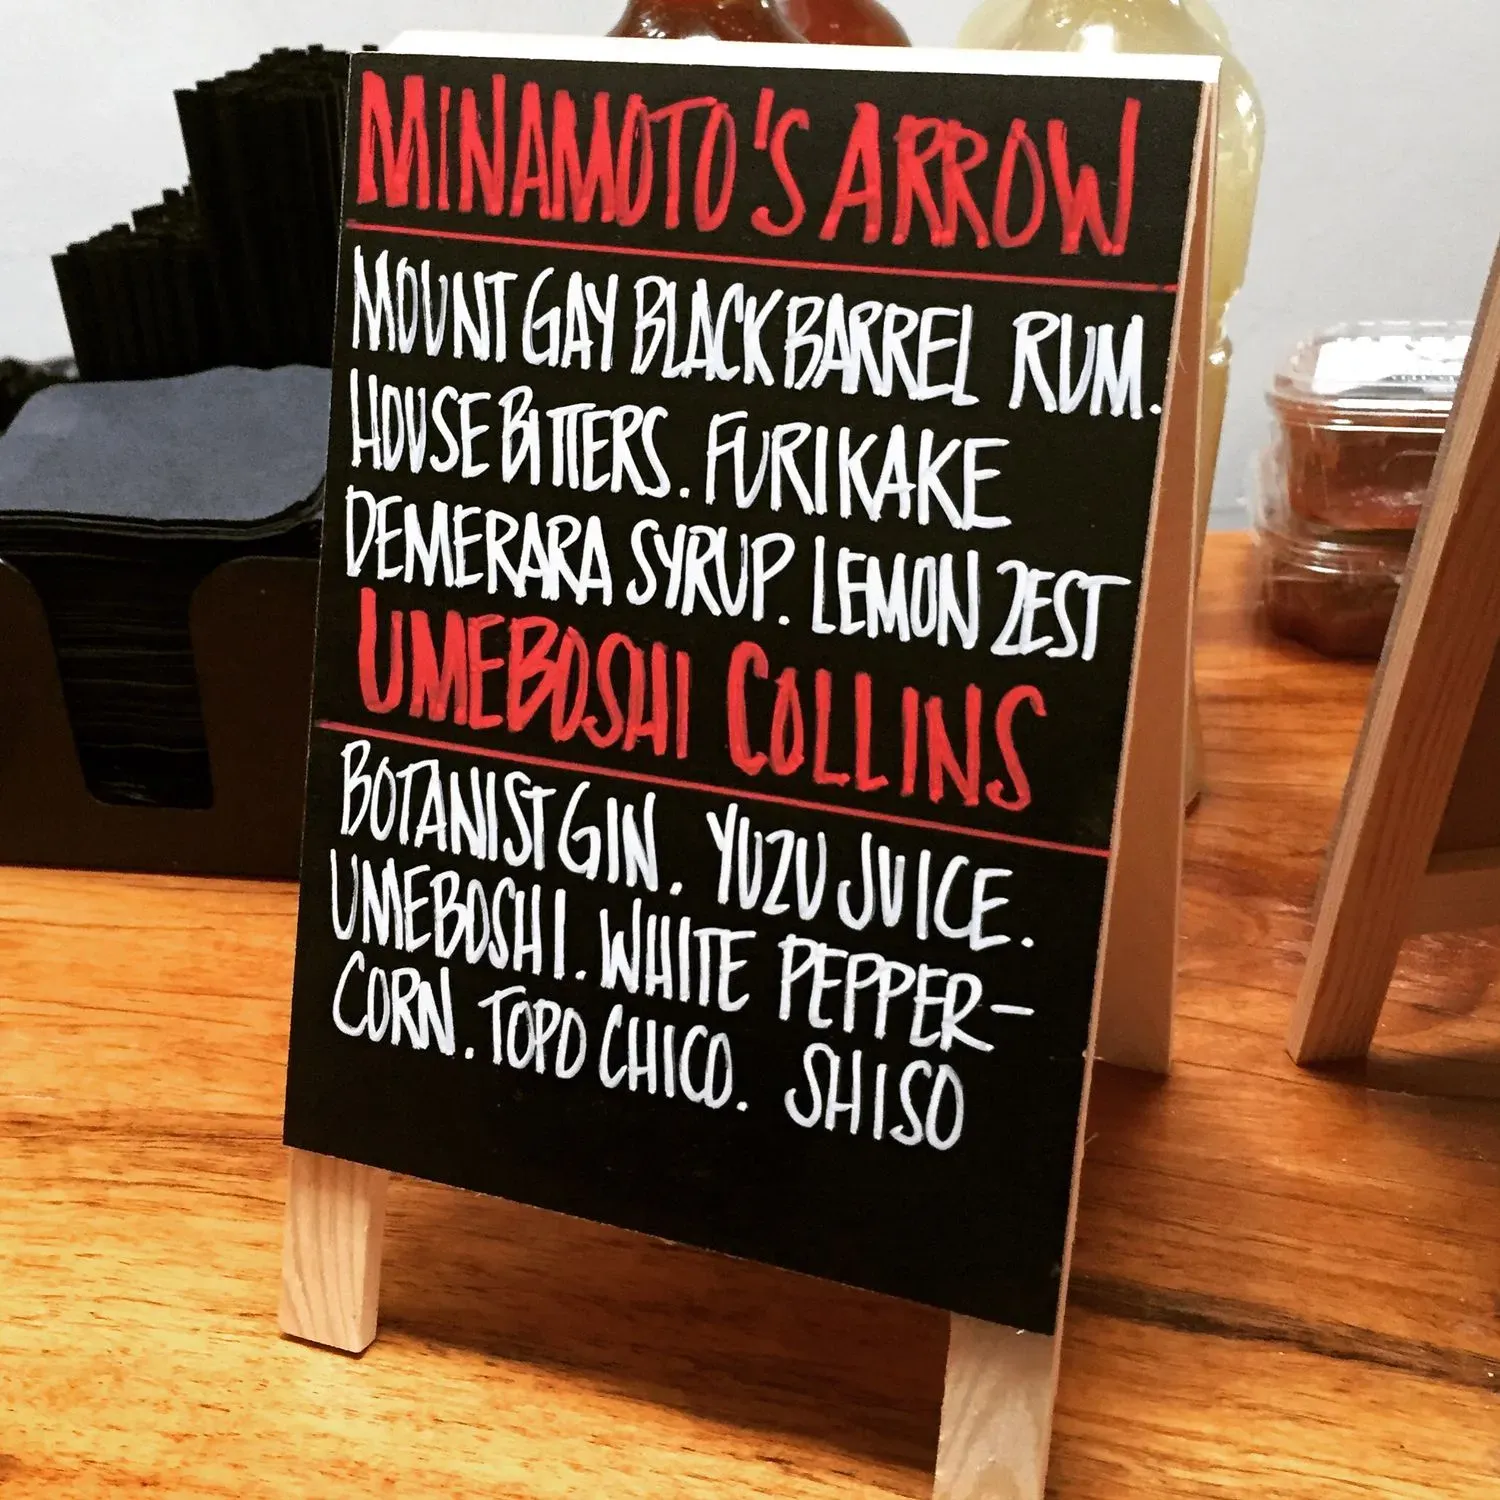 MINAMOTO'S ARROW
MOUNT GAY BLACK BARREL RUM.
HOUSE BITTERS. FURIKAKE
DEMERARA SYRUP. LEMON ZEST
UMEBOSHI COLLINS
BOTANIST GIN. YUZU JUICE.
UMEBOSHI. WHITE PEPPER-
CORN. TOPO CHICO. SHISO